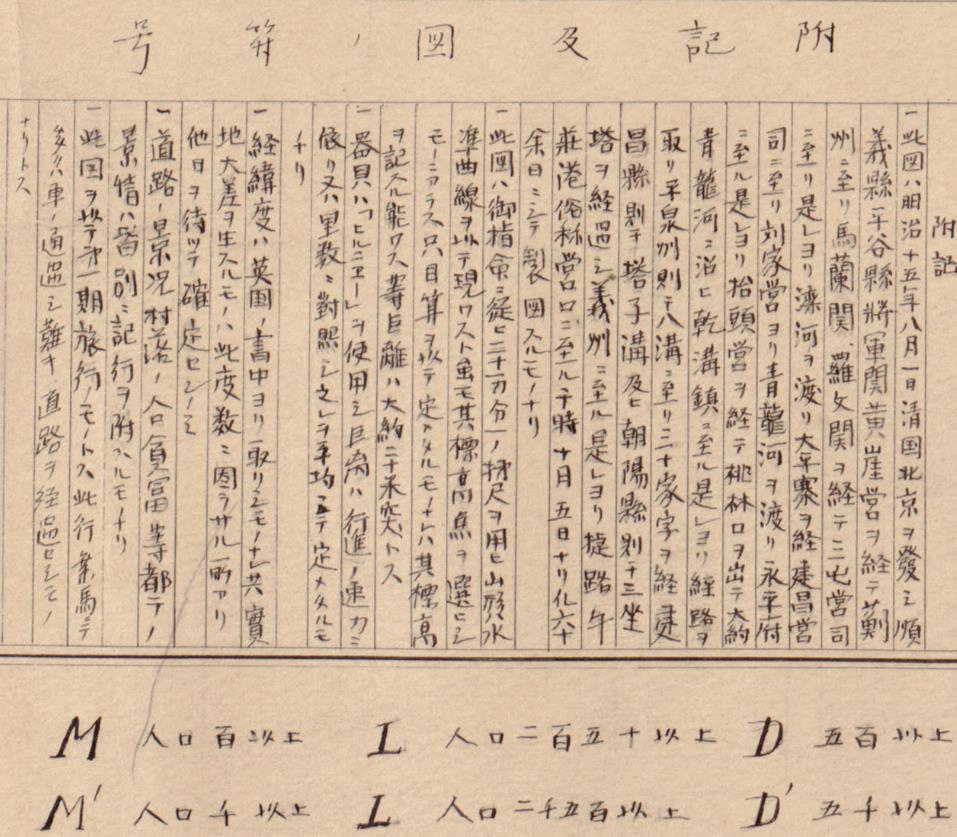 附記及図ノ符号
附記
一此図ハ明治十五年八月一日清国北京ヲ發シ順
義縣平谷縣將軍関黄崖営ヲ経テ薊
州ニ至リ馬蘭関、羅文関ヲ経テ三屯営司
ニ至リ是レヨリ灤河ヲ渡リ大平寨ヲ経建昌営
司ニ至リ刘家営ヨリ青龍河ヲ渡リ永平府
ニ至ル是レヨリ抬頭営ヲ経テ桃林口ヲ出テ大約
青龍河ニ沿ヒ乾溝鎮ニ至ル是レヨリ経路ヲ
取リ平泉州則チ八溝ニ至リ三十家字ヲ経建
昌縣則チ塔子溝及ヒ朝陽縣則チ三坐
塔ヲ経過シ義州ニ至ル是レヨリ捷路牛
莊港俗称営口ニ至ル于時十月五日ナリ仆六十
余日ニシテ製図スルモノナリ
一此図ハ御指命ニ従ヒ二十万分一ノ梯尺ヲ用ヒ山形水
準曲線ヲ以テ現ワスト虽モ其標高焦ヲ選ヒシ
モノニアラス只目算ヲ以テ定メタルモノナレハ其標高
ヲ記スル能ワス等巨離ハ大約二十米突トス
一器具ハ「ヒルニエー」ヲ使用シ巨离ハ行進ノ速力ニ
依リ又ハ里数ニ對照シ之レヲ平均シテ定メタルモ
ナリ
一経緯度ハ英国ノ書中ヨリ取リシモノナレ共實
地大差ヲ生スルモノハ此度数ニ因ラサル所アリ
他日ヲ待ツテ確定セシノミ
一道路ノ景况村落ノ人口貧富等都テノ
景情ハ皆別ニ記行ヲ附スルモノナリ
一此図ヲ以テ第一期旅行ノモノトス此行業馬ニテ
多クハ車ノ通過シ難キ直路ヲ経過セシモノ
ナリトス
D 五百以上
L 人口二百五十以上
M 人口百以上
D' 五千以上
L 人口二千五百以上
M' 人口千以上